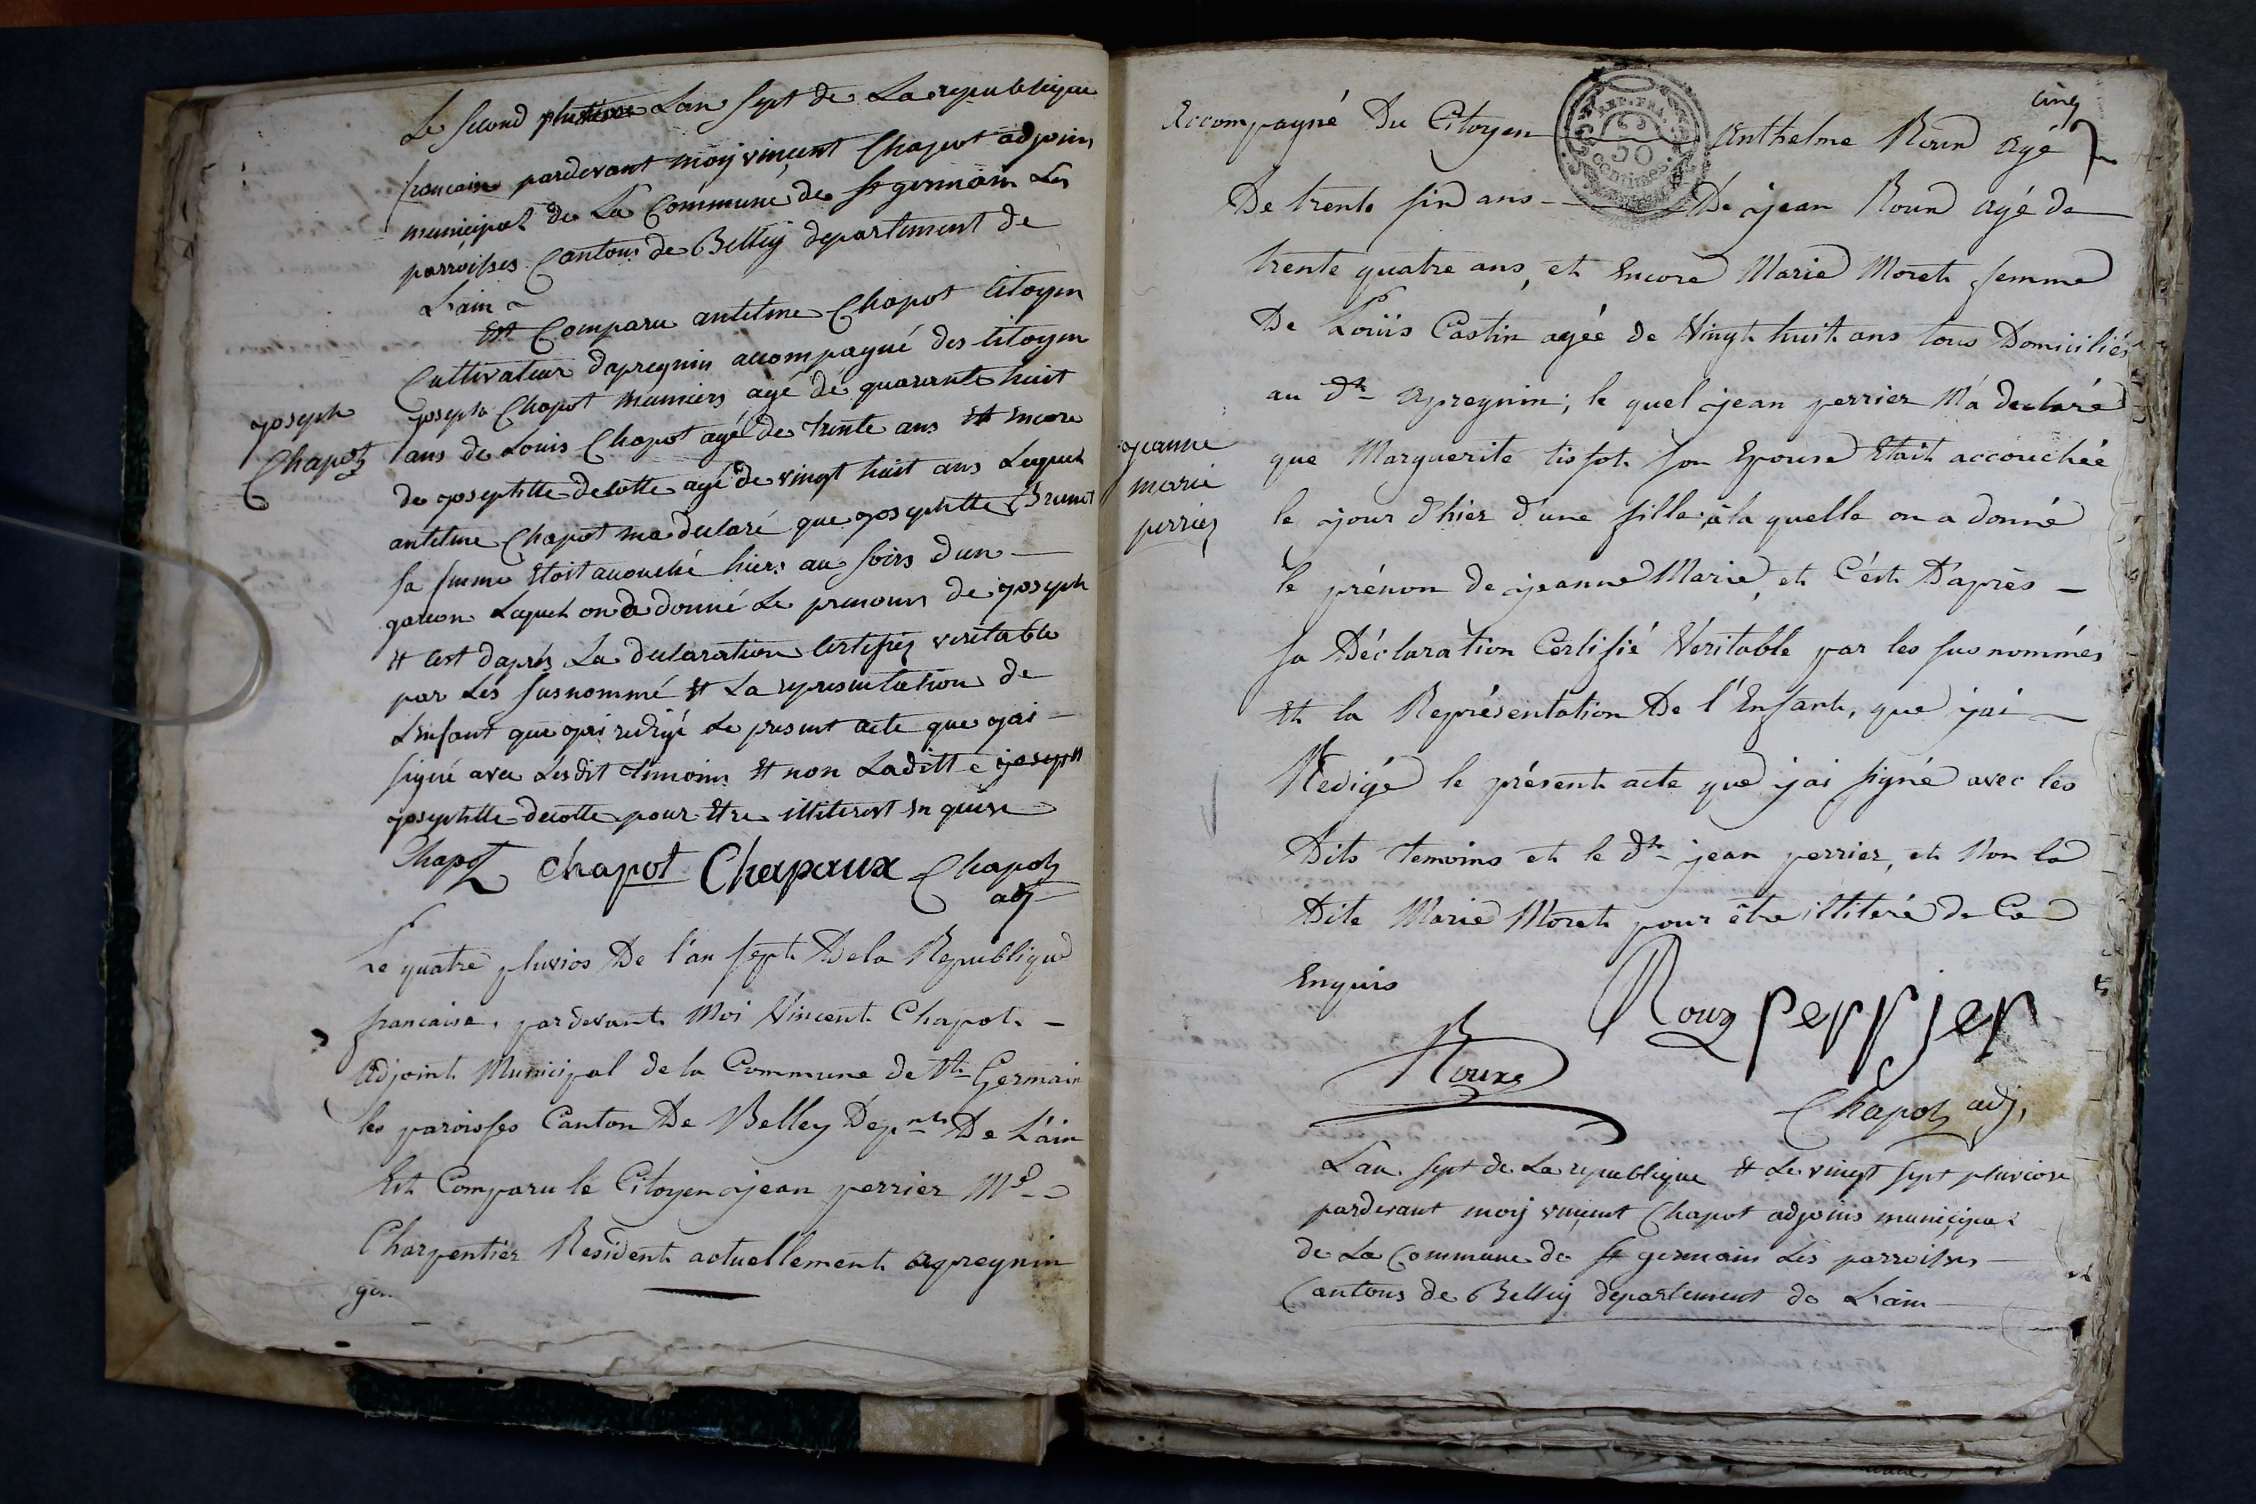 Le second pluviose Lan sept de La republique
francaise pardevant moy vincent Chapot adjoins
municipal de La Commune de st germain Les
parroisses Cantons de Belley departement de
Lain
Et Comparu antelme Chapot Citoyen
Cultivateur dapregnin accompagné des Citoyen
joseph Chapot Meuniers agé de quarante huit
ans de Louis Chapot agé de trente ans Et Encore
de josephtte decotte agé de vingt huit ans Lequel
antelme Chapot ma declaré que josephtte Brunet
sa femme Etoit accouché hiers au soirs dun
garcon Laquel on a donné Le prenoms de joseph
Et cest daprés La declaration Certifiez veritable
par Les susnommé Et La representation de
Lenfant que jai redigé Le present acte que jai
signé avec Lesdit temoins Et non Laditte joseph
josephtte decotte pour Etre illiterest en quise
joseph
Chapot
Chapot chapot Chapaux Chapot
adj
Le quatre pluvios De l'an sept De la Republique
francaise, pardevant Moi Vincent Chapot
adjoint Municipal de la Commune de St Germain
les paroisses Canton De Belley Depnt De L'ain
Est Comparu le Citoyen jean perrier Md
Charpentier Resident actuellement apregnin
cinq
Accompagné Du Citoyen Anthelme Roux agé
REP. FRA.
50
centimes
De trente six ans De jean Roux agé de
trente quatre ans, et Encore Marie Moret femme
De Loüis Castin agée de Vingt huit ans tous Domiciliés
au dt apregnin; le quel jean perrier M'a declaré
que Marguerite tissot son Epouse Etait accouchée
le jour d'hier d'une fille à la quelle on a donné
le prénom de jeanne Marie, et C'est D'après
sa Déclaration Certifié Veritable par les susnommés
Et la Représentation De l'Enfant, que j'ai
Redigé le présent acte que j'ai signé avec les
Dits temoins et le dt jean perrier, et Non la
Dite Marie Moret pour être illiteré de Ce
Enquis
jeanne
marie
perrier
Roux perrier
Roux
Chapot adj,
Lan sept de La republique Et Le vingt sept pluviose
pardevant moy vincent Chapot adjoins municipal
de La Commune de st germain Les parroisses
Cantons de Belley departement de Lain